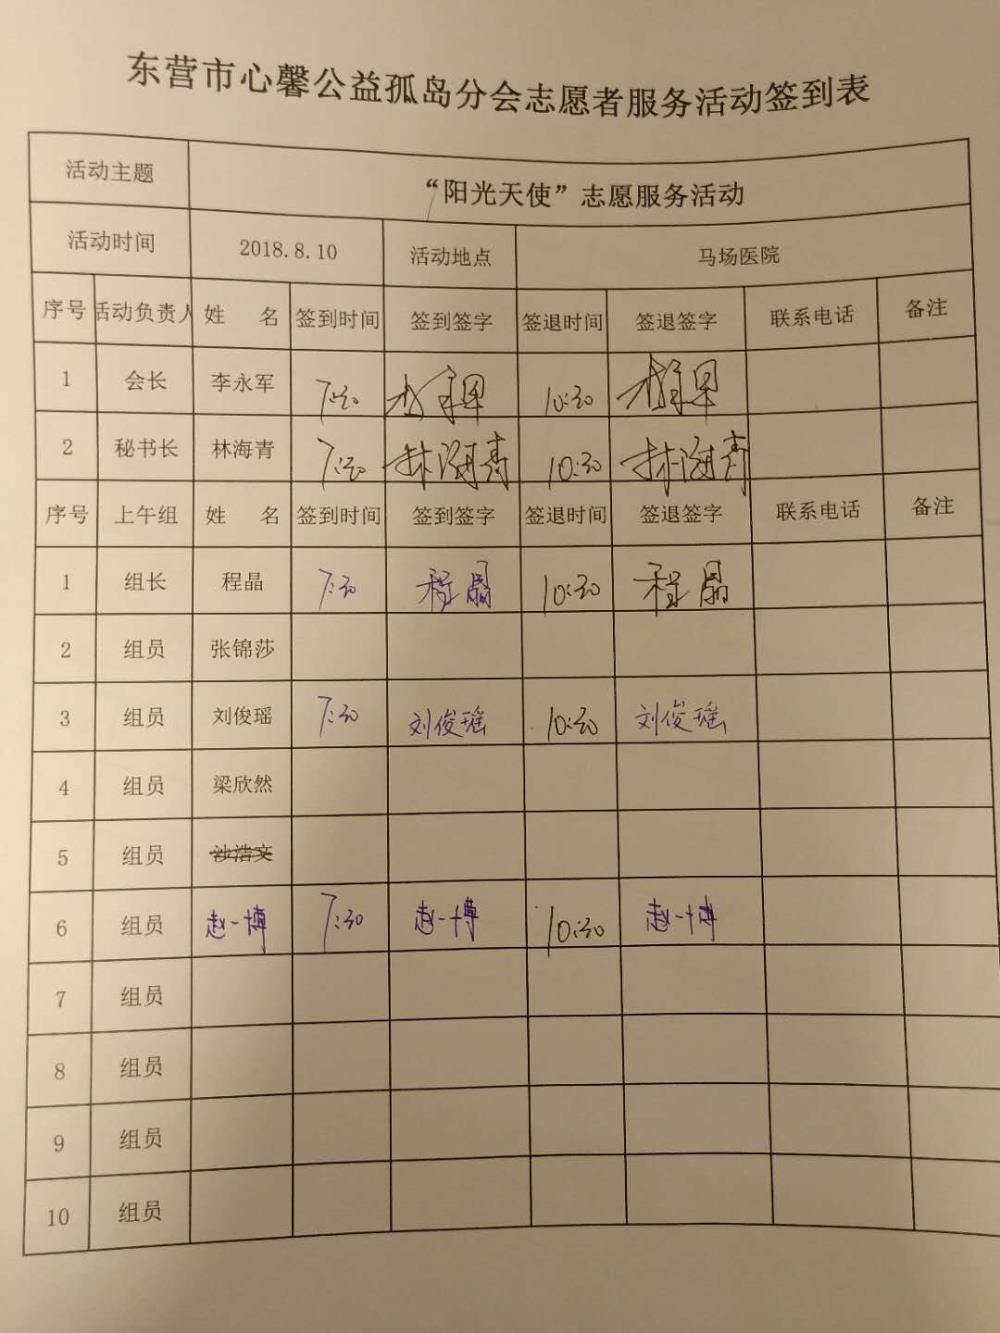 东营市心馨公益孤岛分会志愿者服务活动签到表
活动主题 “阳光天使”志愿服务活动
活动时间 2018.8.10 活动地点 马场医院
序号 活动负责人 姓 名 签到时间 签到签字 签退时间 签退签字 联系电话 备注
1 会长 李永军 7:30 10:30
2 秘书长 林海青 7:30 林海青 10:30 林海青
序号 上午组 姓 名 签到时间 签到签字 签退时间 签退签字 联系电话 备注
1 组长 程晶 7:30 程晶 10:30 程晶
2 组员 张锦莎
3 组员 刘俊瑶 7:30 刘俊瑶 10:30 刘俊瑶
4 组员 梁欣然
5 组员 沙浩文
6 组员 赵一博 7:30 赵一博 10:30 赵一博
7 组员
8 组员
9 组员
10 组员